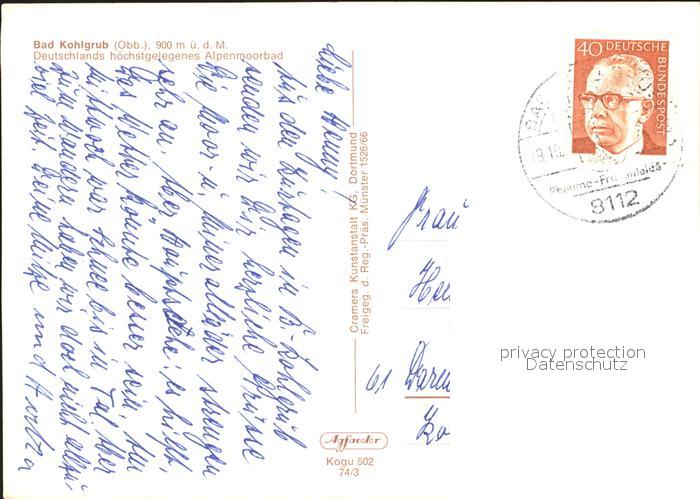 Bad Kohlgrub (Obb.), 900 m ü. d. M.
Deutschlands höchstgelegenes Alpenmoorbad
Liebe Henny!
Aus den Kurtagen in B.-Kohlgrub
senden wir Dir herzliche Grüsse
Die Moor- u. Mineralbäder strengen
sehr an. Aber Hauptsache: es hilft.
Das Wetter könnte besser sein, am
Mittwoch war Schnee bis in Tal. Aber
zum Wandern haben wir doch nicht allzu
viel Zeit. Deine Mütze und
Cramers Kunstanstalt KG, Dortmund
Freigeg. d. Reg.-Präs. Münster 1526/66
Agfacolor
Kogu 502
74/3
40 DEUTSCHE
BUNDESPOST
BAD
8112
Frau
61 Darm
privacy protection
Datenschutz